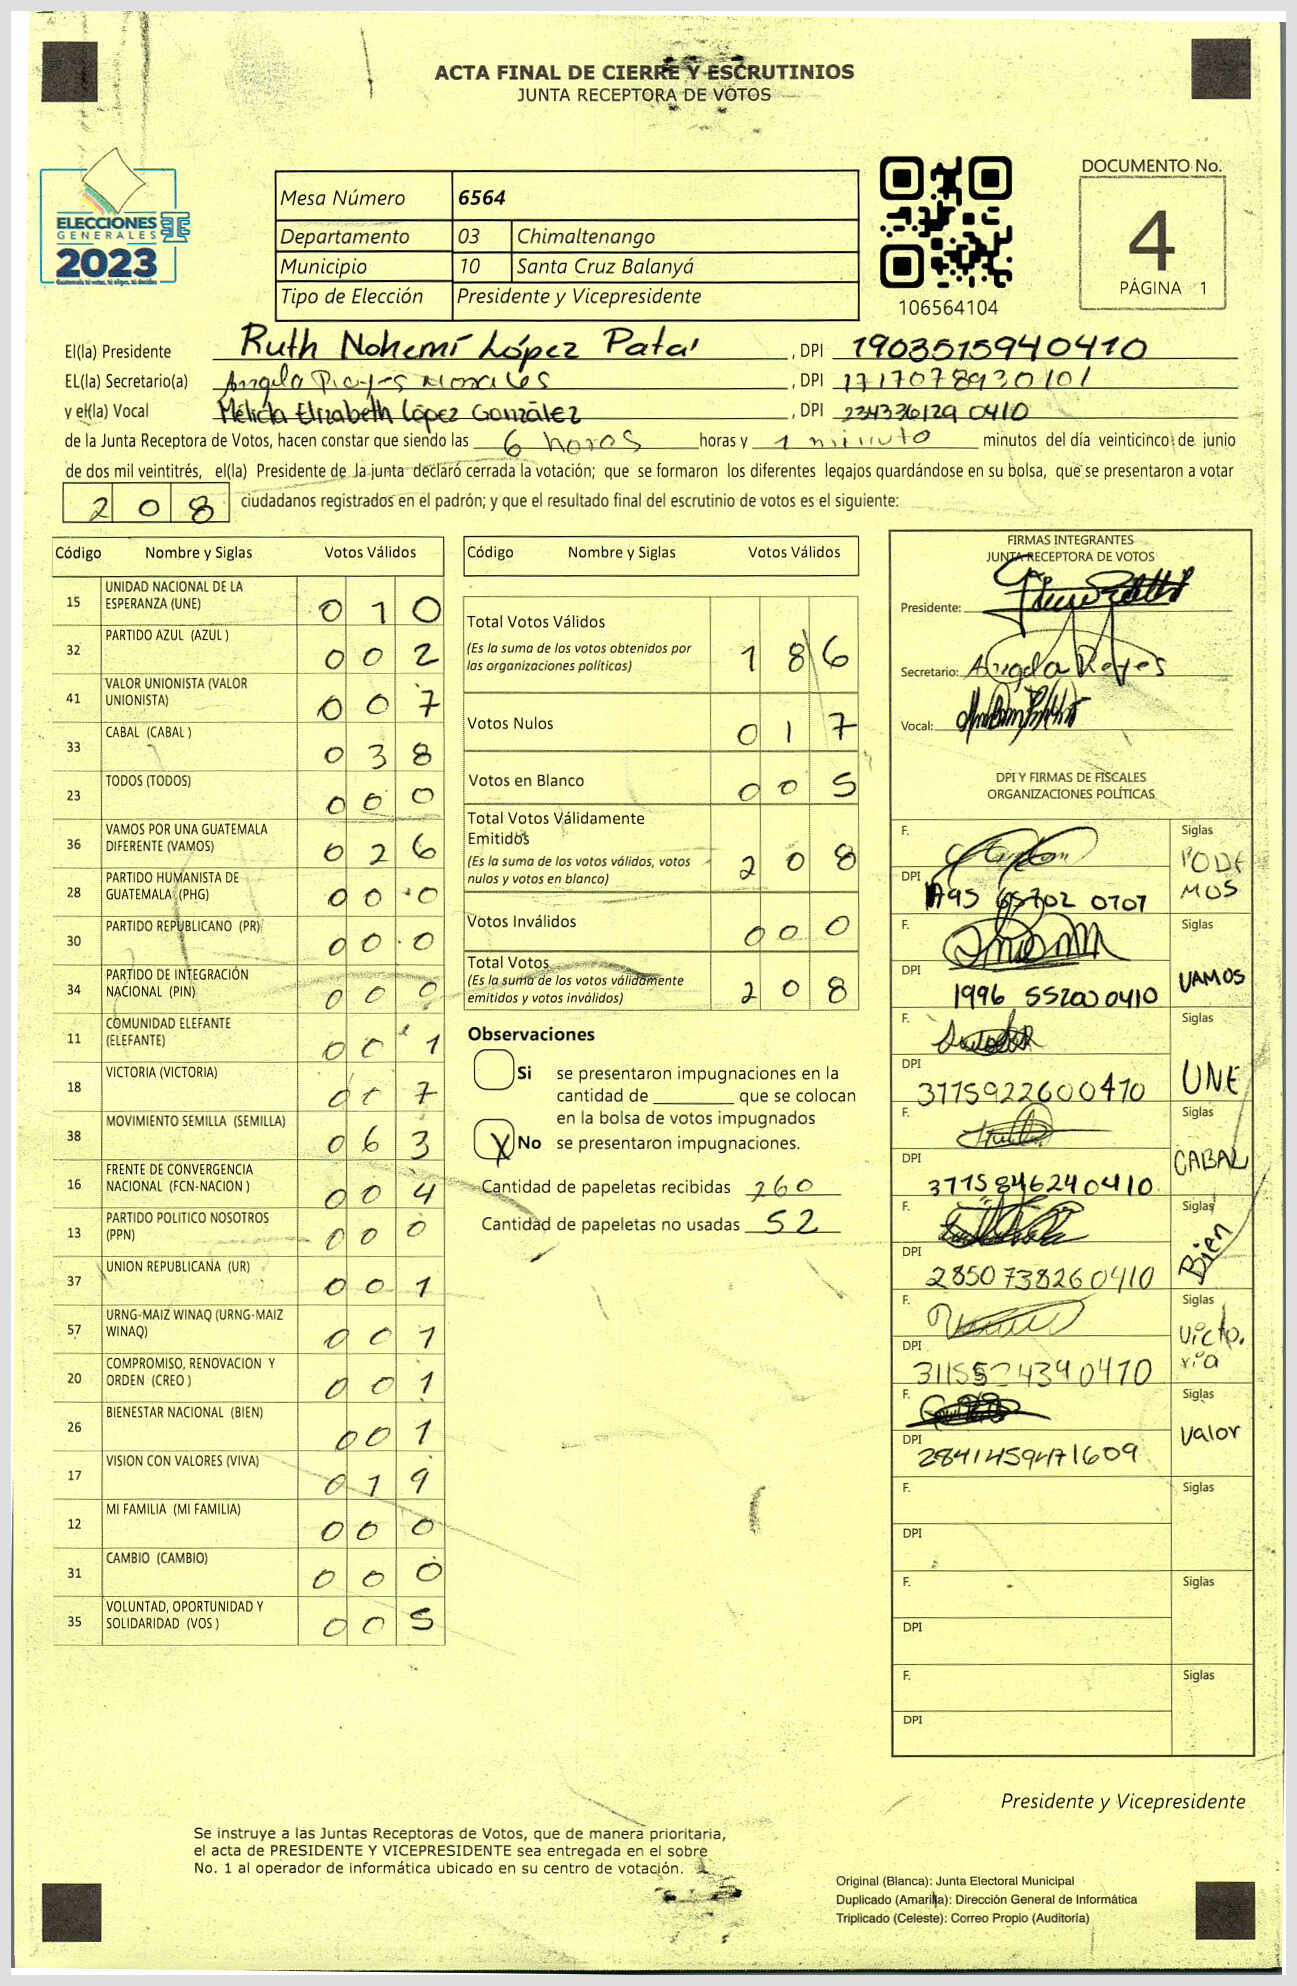 ACTA FINAL DE CIERRE Y ESCRUTINIOS
JUNTA RECEPTORA DE VOTOS
ELECCIONES
GENERALES
2023
Guatemala tú votas, tú eliges, tú decides
Mesa Número 6564
Departamento 03 Chimaltenango
Municipio 10 Santa Cruz Balanyá
Tipo de Elección Presidente y Vicepresidente
106564104
DOCUMENTO No.
4
PÁGINA 1
El(la) Presidente Ruth Nohemí López Patal , DPI 1903515940410
EL(la) Secretario(a) Angela Reyes Morales , DPI 1717078930101
y el(la) Vocal Mélida Elizabeth López González , DPI 2343361290410
de la Junta Receptora de Votos, hacen constar que siendo las 6 horas horas y 1 minuto minutos del día veinticinco de junio
de dos mil veintitrés, el(la) Presidente de la junta declaró cerrada la votación; que se formaron los diferentes legajos quardándose en su bolsa, que se presentaron a votar
208 ciudadanos registrados en el padrón; y que el resultado final del escrutinio de votos es el siguiente:
Código Nombre y Siglas Votos Válidos
15 UNIDAD NACIONAL DE LA ESPERANZA (UNE) 0 1 0
32 PARTIDO AZUL (AZUL ) 0 0 2
41 VALOR UNIONISTA (VALOR UNIONISTA) 0 0 7
33 CABAL (CABAL ) 0 3 8
23 TODOS (TODOS) 0 0 0
36 VAMOS POR UNA GUATEMALA DIFERENTE (VAMOS) 0 2 6
28 PARTIDO HUMANISTA DE GUATEMALA (PHG) 0 0 0
30 PARTIDO REPUBLICANO (PR) 0 0 0
34 PARTIDO DE INTEGRACIÓN NACIONAL (PIN) 0 0 0
11 COMUNIDAD ELEFANTE (ELEFANTE) 0 0 1
18 VICTORIA (VICTORIA) 0 0 7
38 MOVIMIENTO SEMILLA (SEMILLA) 0 6 3
16 FRENTE DE CONVERGENCIA NACIONAL (FCN-NACION ) 0 0 4
13 PARTIDO POLITICO NOSOTROS (PPN) 0 0 0
37 UNION REPUBLICANA (UR) 0 0 1
57 URNG-MAIZ WINAQ (URNG-MAIZ WINAQ) 0 0 1
20 COMPROMISO, RENOVACION Y ORDEN (CREO ) 0 0 1
26 BIENESTAR NACIONAL (BIEN) 0 0 1
17 VISION CON VALORES (VIVA) 0 1 9
12 MI FAMILIA (MI FAMILIA) 0 0 0
31 CAMBIO (CAMBIO) 0 0 0
35 VOLUNTAD, OPORTUNIDAD Y SOLIDARIDAD (VOS ) 0 0 5
Código Nombre y Siglas Votos Válidos
Total Votos Válidos
(Es la suma de los votos obtenidos por las organizaciones políticas) 1 8 6
Votos Nulos 0 1 7
Votos en Blanco 0 0 5
Total Votos Válidamente Emitidos
(Es la suma de los votos válidos, votos nulos y votos en blanco) 2 0 8
Votos Inválidos 0 0 0
Total Votos
(Es la suma de los votos válidamente emitidos y votos inválidos) 2 0 8
Observaciones
Si se presentaron impugnaciones en la
cantidad de ________ que se colocan
en la bolsa de votos impugnados
X No se presentaron impugnaciones.
Cantidad de papeletas recibidas 260
Cantidad de papeletas no usadas 52
FIRMAS INTEGRANTES
JUNTA RECEPTORA DE VOTOS
Presidente:
Secretario: Angela Reyes
Vocal:
DPI Y FIRMAS DE FISCALES
ORGANIZACIONES POLÍTICAS
F. Siglas PODEMOS
DPI 0707
F. Siglas VAMOS
DPI 1996 552000410
F. Siglas UNE
DPI 3775922600410
F. Siglas CABAL
DPI 3775846240410
F. Siglas Bien
DPI 2850738260410
F. Siglas Victoria
DPI 3115524390410
F. Siglas Valor
DPI 2841459471609
F. Siglas
DPI
F. Siglas
DPI
F. Siglas
DPI
Presidente y Vicepresidente
Se instruye a las Juntas Receptoras de Votos, que de manera prioritaria,
el acta de PRESIDENTE Y VICEPRESIDENTE sea entregada en el sobre
No. 1 al operador de informática ubicado en su centro de votación.
Original (Blanca): Junta Electoral Municipal
Duplicado (Amarilla): Dirección General de Informática
Triplicado (Celeste): Correo Propio (Auditoría)